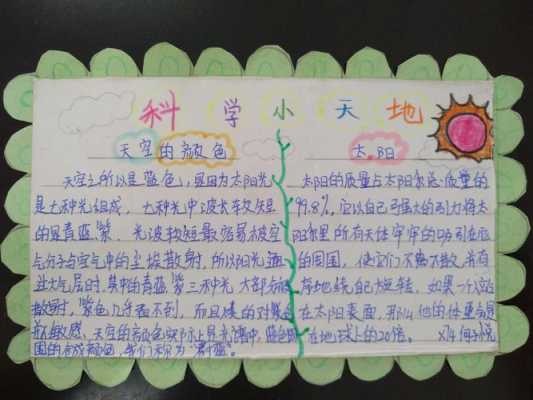 科学小天地
天空的颜色
天空之所以是蓝色,是因为太阳光
是七种光组成,七种光中波长较短
的是青蓝紫,光波较短最容易被空
气分子与空气中的尘埃散射,所以阳光通
过大气层时,其中的青蓝紫三种光大部分被
散射,紫色几乎看不到,而且人的对紫色
不敏感,天空的颜色实际上是光谱中蓝色
国的合成颜色,我们称为"青蓝"。
太阳
太阳的质量占太阳系总质量的
99.8%,它以自己强大的引力将太
阳系里所有天体牢牢的吸引在它
的周围,使它们不离不散,并有
序地绕自己旋转,如果一个人站
在太阳表面,那么他的体重会是
在地球上的20倍。